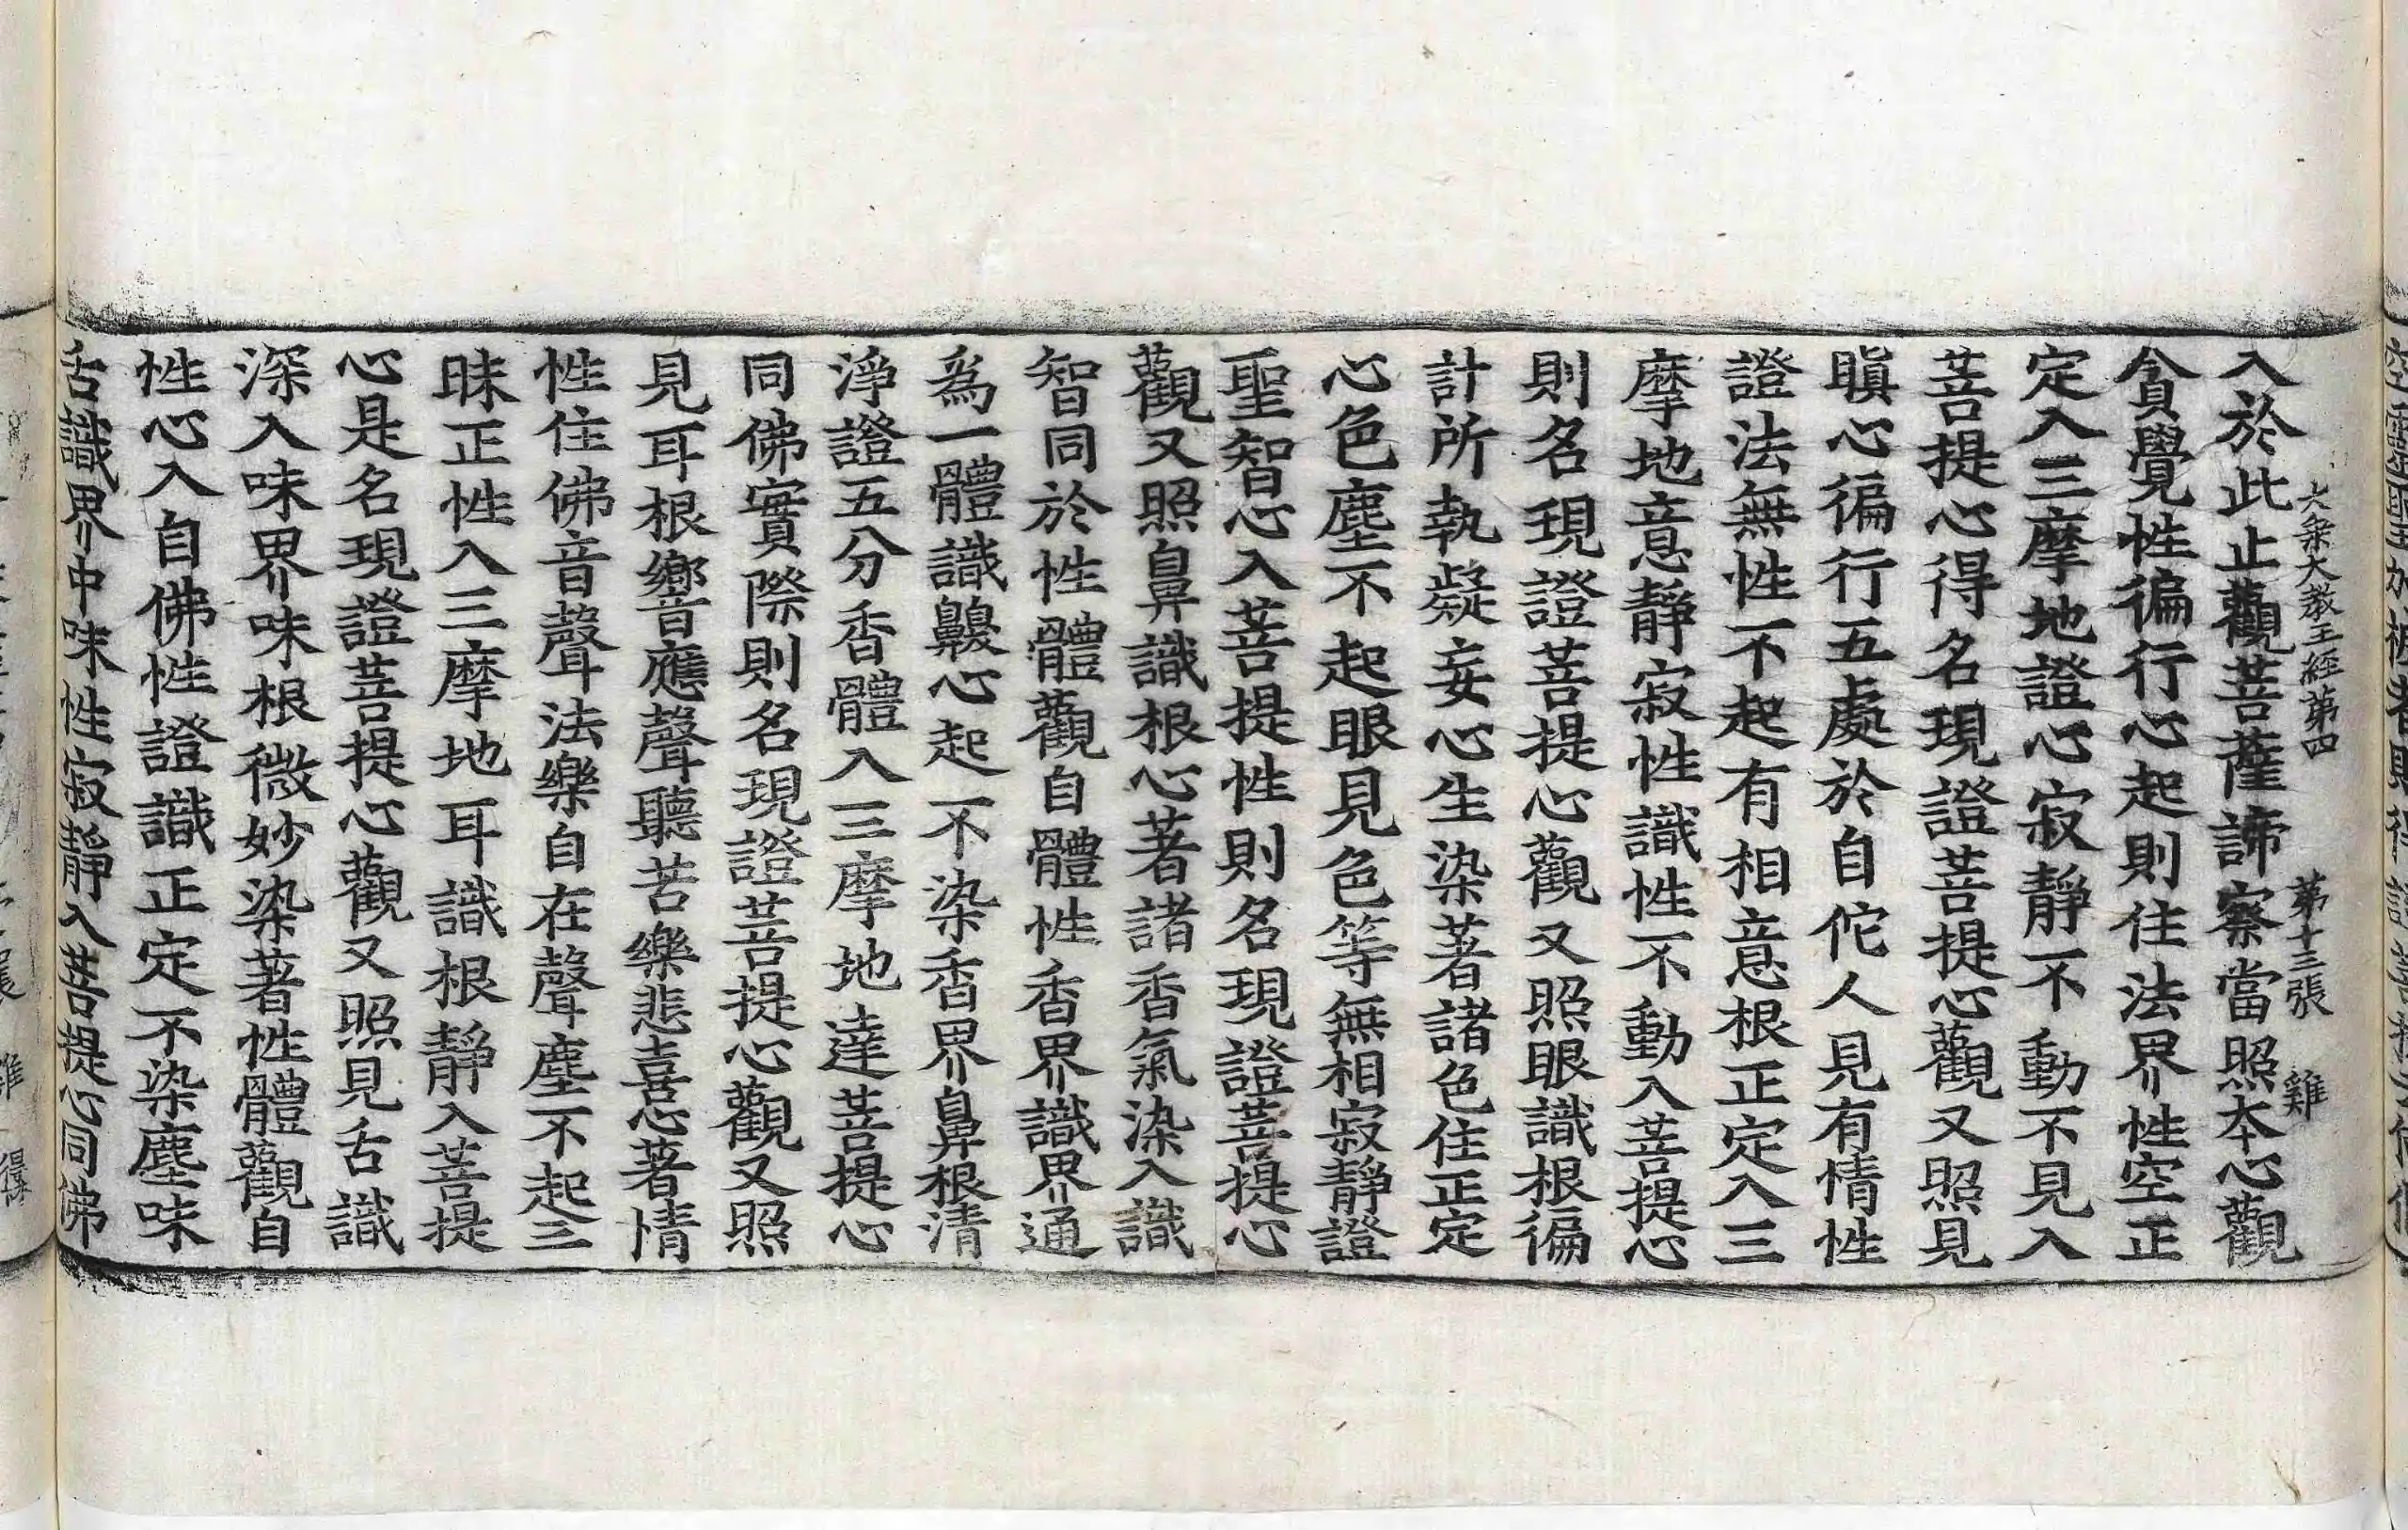 大乘大教王經第四 第十三張 雞
入於此止觀菩薩諦察當照本心觀
貪覺性徧行心起則住法界性空正
定入三摩地證心寂靜不動不見入
菩提心得名現證菩提心觀又照見
瞋心徧行五處於自佗人見有情性
證法無性不起有相意根正定入三
摩地意靜寂性識性不動入菩提心
則名現證菩提心觀又照眼識根徧
計所執凝妄心生染著諸色住正定
心色塵不起眼見色等無相寂靜證
聖智心入菩提性則名現證菩提心
觀又照鼻識根心著諸香氣染入識
智同於性體觀自體性香界識界通
為一體識齅心起不染香界鼻根清
淨證五分香體入三摩地達菩提心
同佛實際則名現證菩提心觀又照
見耳根嚮應聲聽苦樂悲喜心著情
性住佛音聲法樂自在聲塵不起三
昧正性入三摩地耳識根靜入菩提
心是名現證菩提心觀又照見舌識
深入味界味根微妙染著性體觀自
性心入自佛性證識正定不染塵味
舌識界中味性寂靜入菩提心同佛